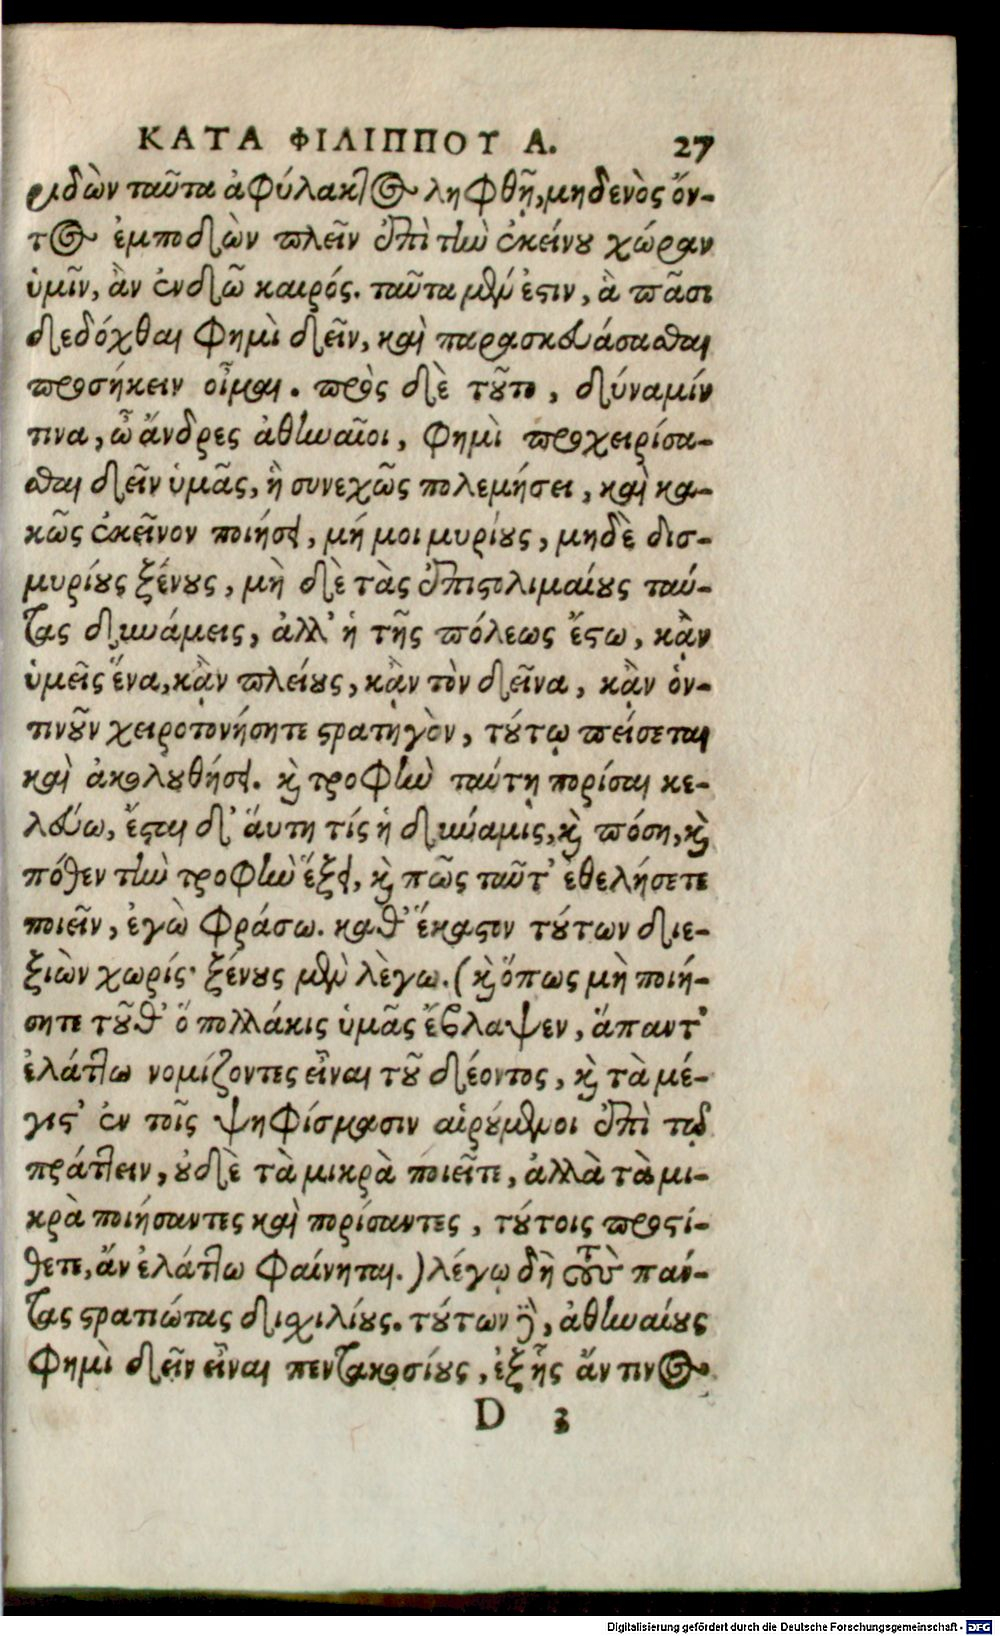 ΚΑΤΑ ΦΙΛΙΠΠΟΥ Α. 27
ριδὼν ταῦτα ἀφύλακτος ληφθῇ, μηδενὸς ὄν-
τος ἐμποδὼν πλεῖν ἐπὶ τὴν ἐκείνου χώραν
ὑμῖν, ἂν ἐνδῶ καιρός. ταῦτα μέν ἐστιν, ἃ πᾶσι
δεδόχθαι φημὶ δεῖν, καὶ παρασκευάσασθαι
προσήκειν οἶμαι. πρὸς δὲ τοῦτο, δύναμίν
τινα, ὦ ἄνδρες ἀθηναῖοι, φημὶ προχειρίσα-
σθαι δεῖν ὑμᾶς, ἢ συνεχῶς πολεμήσει, καὶ κα-
κῶς ἐκεῖνον ποιήσει, μή μοι μυρίους, μηδὲ δισ-
μυρίους ξένους, μὴ δὲ τὰς ἐπιστολιμαίους ταύ-
τας δυνάμεις, ἀλλ' ἡ τῆς πόλεως ἔστω, κᾂν
ὑμεῖς ἕνα, κᾂν πλείους, κᾂν τὸν δεῖνα, κᾂν ὁν-
τινοῦν χειροτονήσητε στρατηγὸν, τούτῳ πείσεται
καὶ ἀκολουθήσει. καὶ τροφὴν ταύτῃ πορίσαι κε-
λεύω, ἔσται δ' ἅυτη τίς ἡ δύναμις, καὶ πόση, καὶ
πόθεν τὴν τροφὴν ἕξει, καὶ πῶς ταῦτ' ἐθελήσετε
ποιεῖν, ἐγὼ φράσω. καθ' ἕκαστον τούτων διε-
ξιὼν χωρίς· ξένους μὲν λὲγω. (καὶ ὅπως μὴ ποιή-
σητε τοῦθ' ὅ πολλάκις ὑμᾶς ἔβλαψεν, ἅπαντ'
ἐλάττω νομίζοντες εἶναι τοῦ δέοντος, καὶ τὰ μέ-
γιστ' ἐν τοῖς ψηφίσμασιν αἱρούμενοι ἐπὶ τῷ
πράττειν, οὐδὲ τὰ μικρὰ ποιεῖτε, ἀλλὰ τὰ μι-
κρὰ ποιήσαντες καὶ πορίσαντες, τούτοις προστί-
θετε, ἄν ἐλάττω φαίνηται.) λέγω δὴ τοὺς πάν-
τας στρατιώτας δισχιλίους. τούτων δὲ, ἀθηναίους
φημὶ δεῖν εἶναι πεντακοσίους, ἐξ ἧς ἄν τινος
D 3
Digitalisierung gefördert durch die Deutsche Forschungsgemeinschaft - DFG